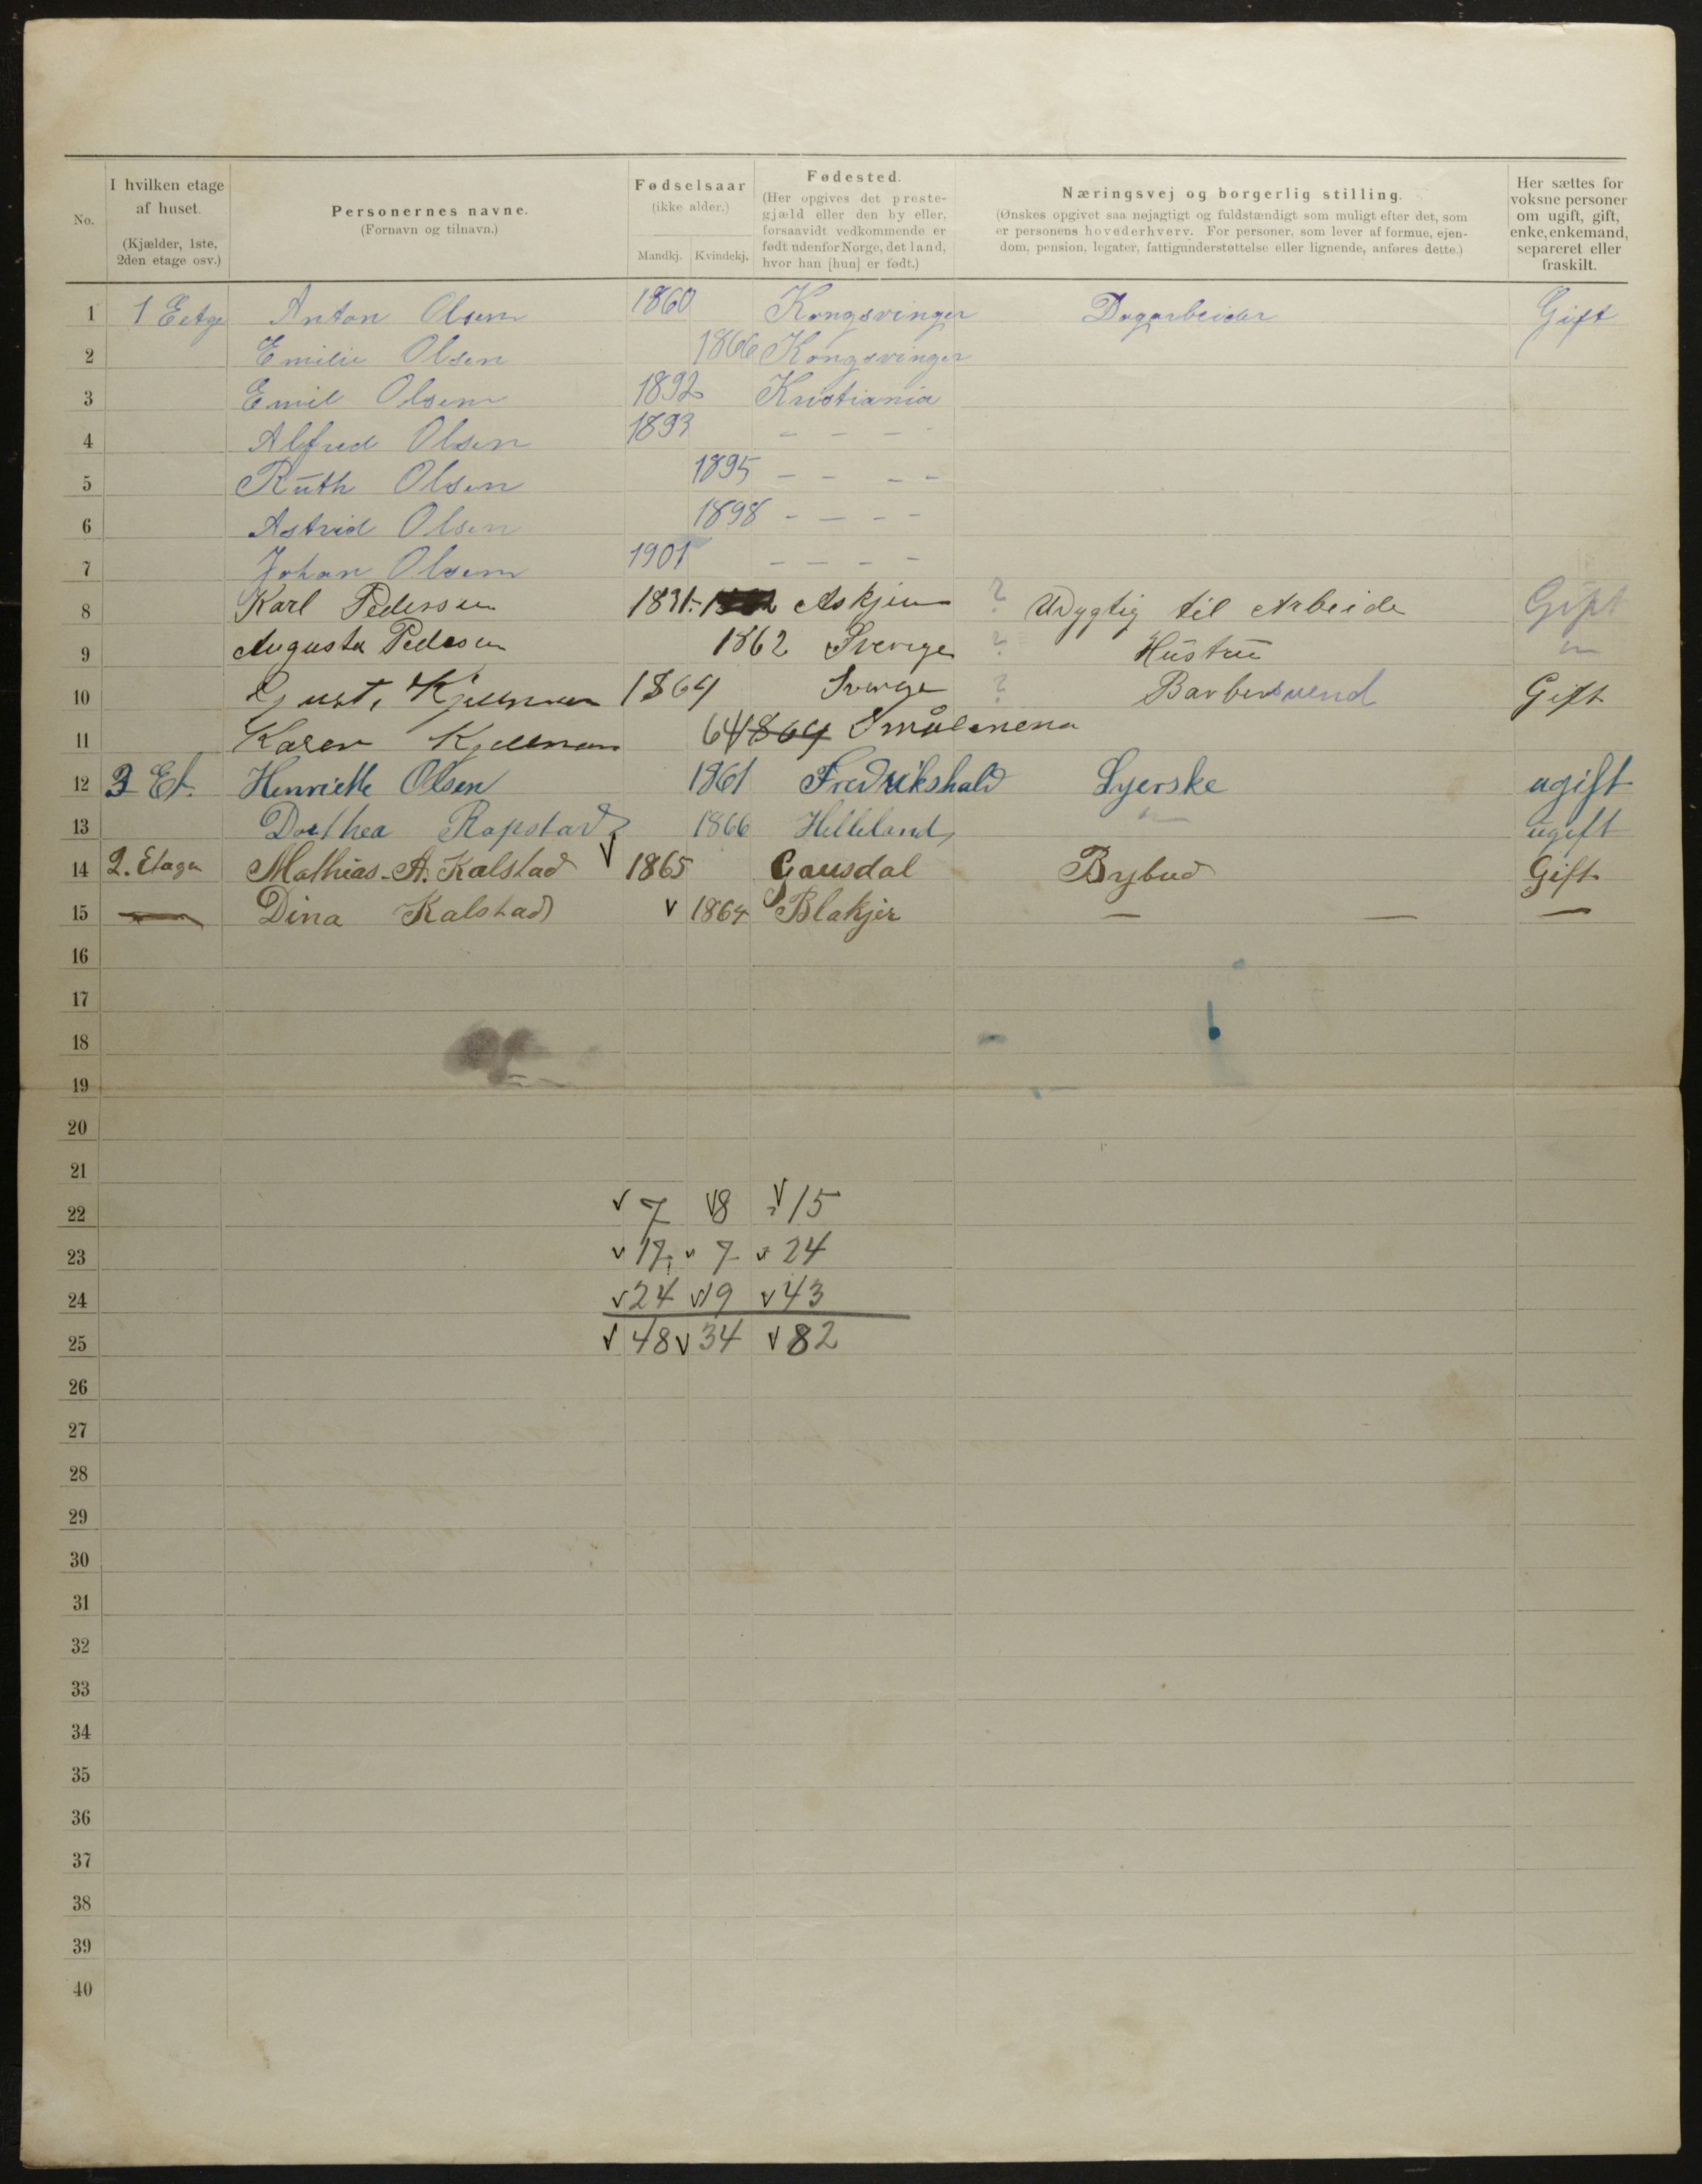 No.
I hvilken etage af huset.
(Kjælder, 1ste, 2den etage osv.)
Personernes navne.
(Fornavn og tilnavn.)
Fødselsaar
(ikke alder.)
Mandkj. Kvindekj.
Fødested.
(Her opgives det preste-
gjæld eller den by eller,
forsaavidt vedkommende er
født udenfor Norge, det land,
hvor han [hun] er født.)
Næringsvej og borgerlig stilling.
(Ønskes opgivet saa nøjagtigt og fuldstændigt som muligt efter det, som
er personens hovederhverv. For personer, som lever af formue, ejen-
dom, pension, legater, fattigunderstøttelse eller lignende, anføres dette.)
Her sættes for
voksne personer
om ugift, gift,
enke, enkemand,
separeret eller
fraskilt.
1 1 Eetge Anton Olsen 1860 Kongsvinger Dagarbeider Gift
2 Emilie Olsen 1866 Kongsvinger
3 Emil Olsen 1892 Kristiania
4 Alfred Olsen 1893 – – – –
5 Ruth Olsen 1895 – – – –
6 Astrid Olsen 1898 – – – –
7 Johan Olsen 1901 – – – –
8 Karl Pedersen 1831 Askjem ? Udygtig til Arbeide Gift
9 Augusta Pedesen 1862 Sverige ? Hustru
10 Kjellman 1864 Sverge ? Barbersvend Gift
11 Karen Kjellman 64 1864 Smålenena
12 3 Et. Henriette Olsen 1861 Fredrikshald Syerske ugift
13 Dorthea Rapstad 1866 Helleland ugift
14 2. Etage Mathias A. Kalstad 1865 Gausdal Bybud Gift
15 Dina Kalstad 1864 Blakjer — — —
16
17
18
19
20
21
22 7 8 15
23 17 7 24
24 24 19 43
25 48 34 82
26
27
28
29
30
31
32
33
34
35
36
37
38
39
40